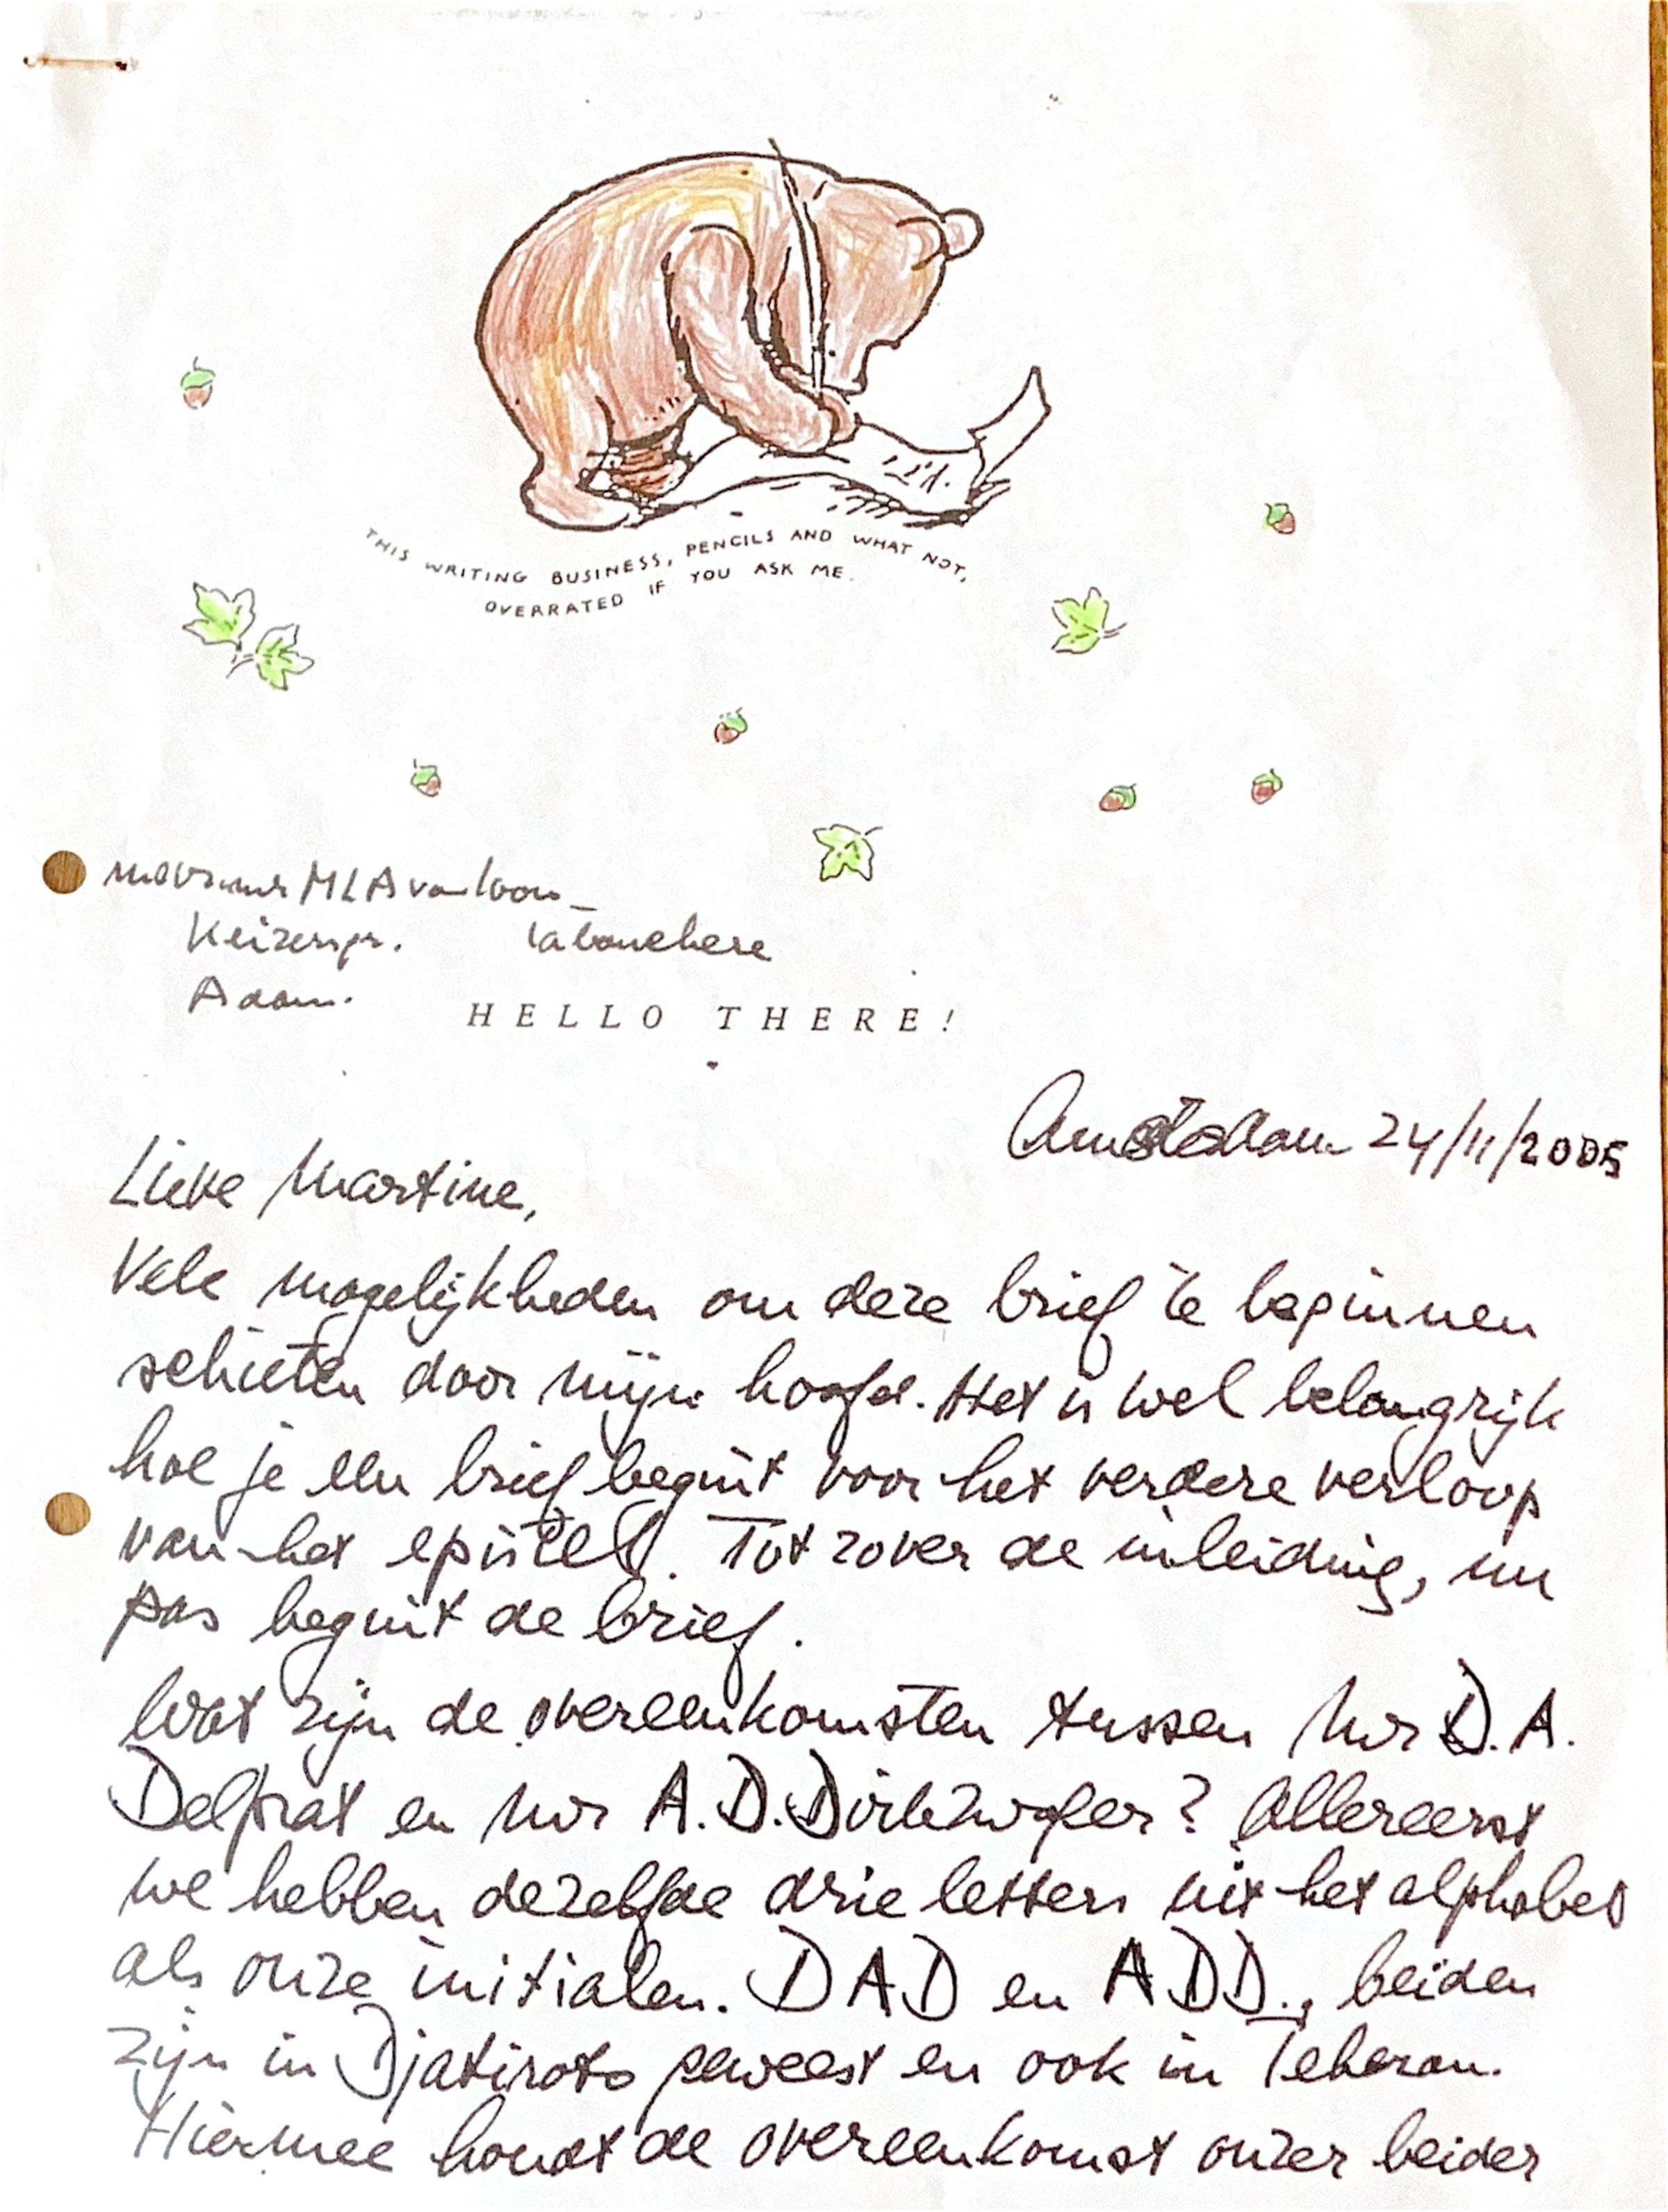 THIS WRITING BUSINESS, PENCILS AND WHAT NOT,
OVERRATED IF YOU ASK ME.
mevrouw MLA van Loon_
Keizersgr. Labouchere
Adam.
HELLO THERE!
Amsterdam 24/11/2005
Lieve Martine,
Vele mogelijkheden om deze brief te beginnen
schieten door mijn hoofd. Het is wel belangrijk
hoe je een brief begint voor het verdere verloop
van het epistel. Tot zover de inleiding, nu
pas begint de brief.
Wat zijn de overeenkomsten tussen Mr D.A.
Delprat en Mr A.D. Dirkzwager? Allereerst
we hebben dezelfde drie letters uit het alphabet
als onze initialen. DAD en ADD., beiden
zijn in Djatiroto geweest en ook in Teheran.
Hiermee houdt de overeenkomst onzer beider